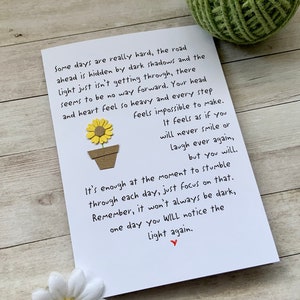 Some days are really hard, the road
ahead is hidden by dark shadows and the
light just isn't getting through, there
seems to be no way forward. Your head
and heart feel so heavy and every step
feels impossible to make.
It feels as if you
will never smile or
laugh ever again,
but you will.
It's enough at the moment to stumble
through each day, just focus on that.
Remember, it won't always be dark,
one day you WILL notice the
light again.